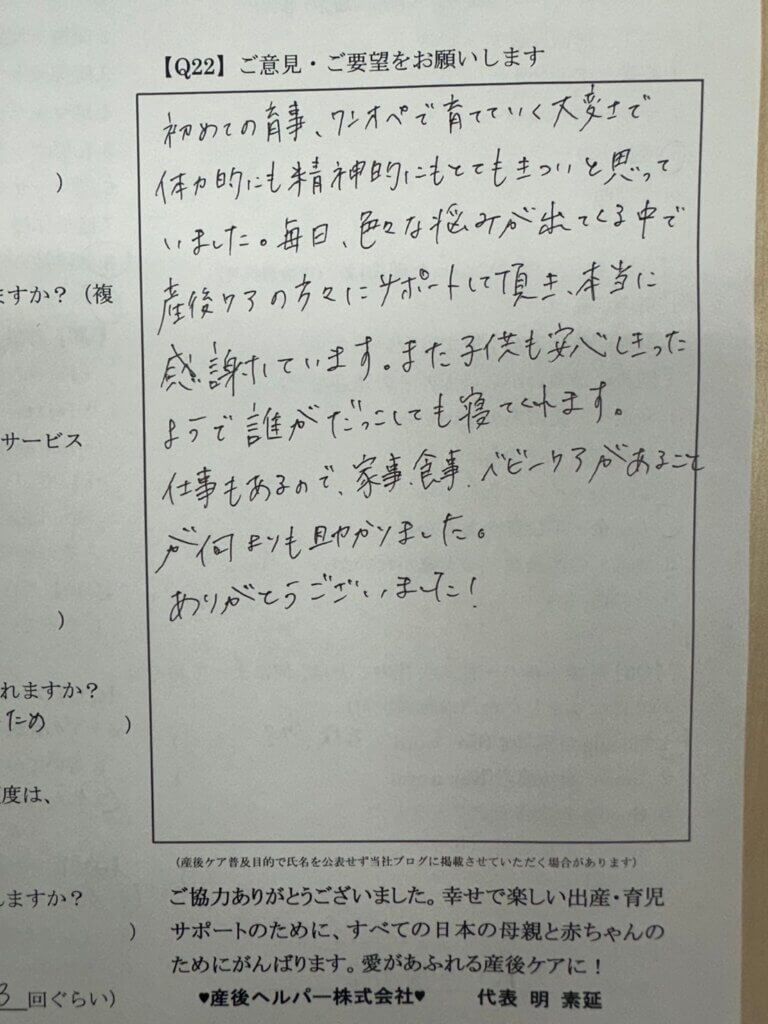 【Q22】ご意見・ご要望をお願いします
初めての育事、ワンオペで育てていく大変さで
体力的にも精神的にもとてもきついと思って
いました。毎日、色々な悩みが出てくる中で
産後ケアの方々にサポートして頂き、本当に
感謝しています。また子供も安心しきった
ようで誰がだっこしても寝てくれます。
仕事もあるので、家事、食事、ベビーケアがあること
が何よりも助かりました。
ありがとうございました!
(産後ケア普及目的で氏名を公表せず当社ブログに掲載させていただく場合があります)
ご協力ありがとうございました。幸せで楽しい出産・育児
サポートのために、すべての日本の母親と赤ちゃんの
ためにがんばります。愛があふれる産後ケアに!
♥産後ヘルパー株式会社♥ 代表 明 素延
)
ますか?(複
サービス
)
れますか?
ため )
度は、
しますか?
)
3 回ぐらい)